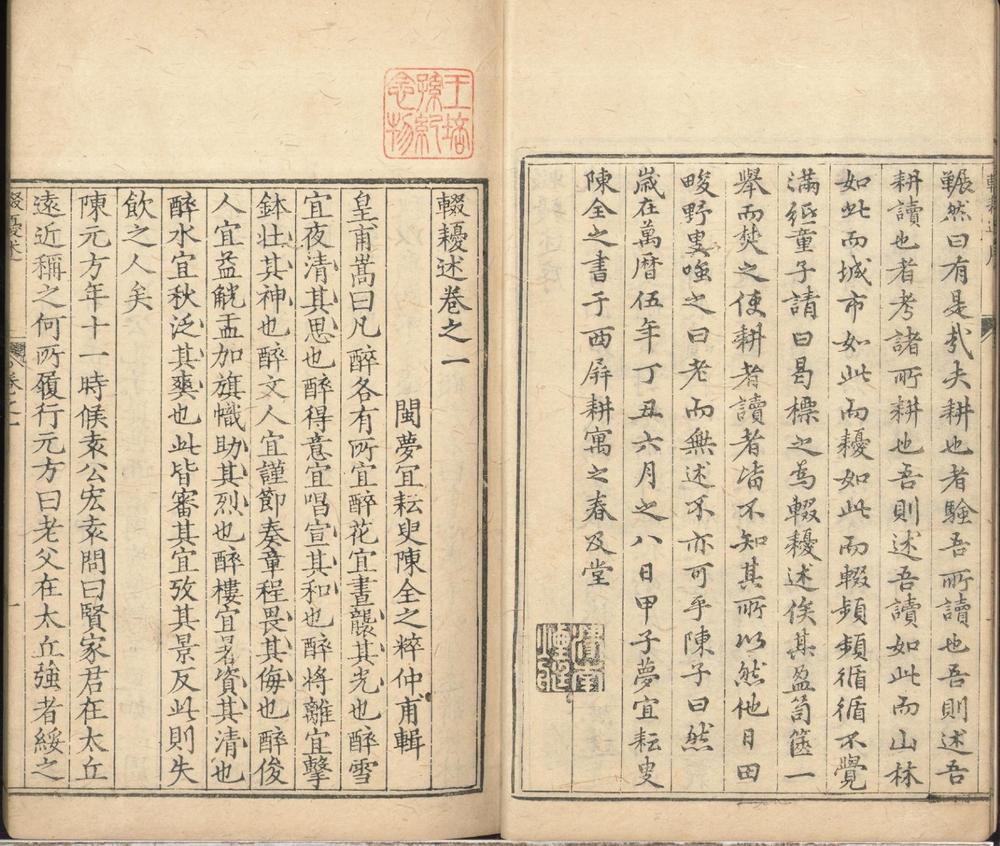 輾然曰有是哉夫耕也者驗吾所讀也吾則述吾
耕讀也者考諸所耕也吾則述吾讀如此而山林
如此而城市如此而耰如此而輟頻頻循循不覺
滿紙童子請曰曷標之為輟耰述俟其盈笥篋一
舉而焚之使耕者讀者皆不知其所以然他日田
畯野叟嗤之曰老而無述不亦可乎陳子曰然
歲在萬曆伍年丁丑六月之八日甲子夢宜耘叟
陳全之書于西屏耕寓之春及堂
王培孫紀念物
輟耰述卷之一
閩夢宜耘叟陳全之粹仲甫輯
皇甫嵩曰凡醉各有所宜醉花宜晝襲其光也醉雪
宜夜清其思也醉得意宜唱宣其和也醉將離宜擊
鉢壯其神也醉文人宜謹節奏章程畏其侮也醉俊
人宜益觥盂加旗幟助其烈也醉樓宜暑資其清也
醉水宜秋泛其爽也此皆審其宜攷其景反此則失
飲之人矣
陳元方年十一時候袁公袁問曰賢家君在太丘
遠近稱之何所履行元方曰老父在太丘強者綏之
輟耰述
卷之一
一